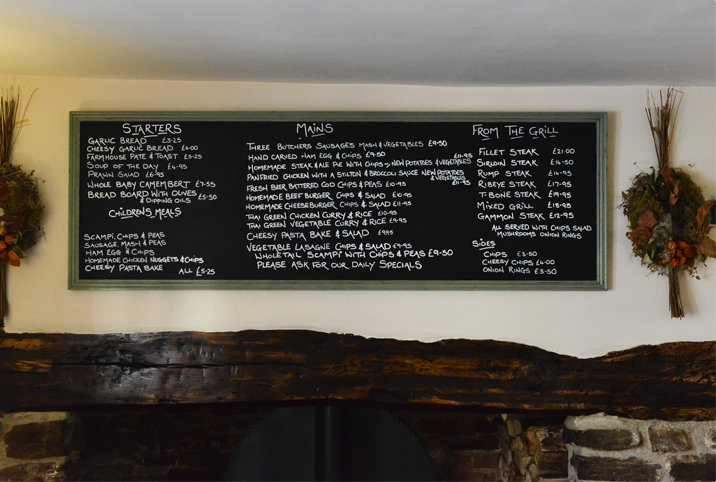 STARTERS
GARLIC BREAD £3·25
CHEESY GARLIC BREAD £4·00
FARMHOUSE PATE & TOAST £5·25
SOUP OF THE DAY £4·95
PRAWN SALAD £6·95
WHOLE BABY CAMEMBERT £7·55
BREAD BOARD WITH OLIVES £5·50
& DIPPING OILS
CHILDRENS MEALS
SCAMPI, CHIPS & PEAS
SAUSAGE, MASH & PEAS
HAM EGG & CHIPS
HOMEMADE CHICKEN NUGGETS & CHIPS
CHEESY PASTA BAKE ALL £5·25
MAINS
THREE BUTCHERS SAUSAGES MASH & VEGETABLES £9·50
HAND CARVED HAM EGG & CHIPS £9·50
HOMEMADE STEAK & ALE PIE WITH CHIPS NEW POTATOES & VEGETABLES £11·95
PANFRIED CHICKEN WITH A STILTON & BROCCOLI SAUCE NEW POTATOES
& VEGETABLES £11·95
FRESH BEER BATTERED COD CHIPS & PEAS £10·95
HOMEMADE BEEF BURGER CHIPS & SALAD £10·95
HOMEMADE CHEESEBURGER CHIPS & SALAD £11·95
THAI GREEN CHICKEN CURRY & RICE £10·95
THAI GREEN VEGETABLE CURRY & RICE £9·95
CHEESY PASTA BAKE & SALAD £9.95
VEGETABLE LASAGNE CHIPS & SALAD £9·95
WHOLETAIL SCAMPI WITH CHIPS & PEAS £9·50
PLEASE ASK FOR OUR DAILY SPECIALS
FROM THE GRILL
FILLET STEAK £21·00
SIRLOIN STEAK
RUMP STEAK
RIBEYE STEAK £17·95
T-BONE STEAK £19·95
MIXED GRILL £18·95
GAMMON STEAK £12·95
ALL SERVED WITH CHIPS SALAD
MUSHROOMS ONION RINGS
SIDES
CHIPS £3·50
CHEESY CHIPS £4·00
ONION RINGS £3·50